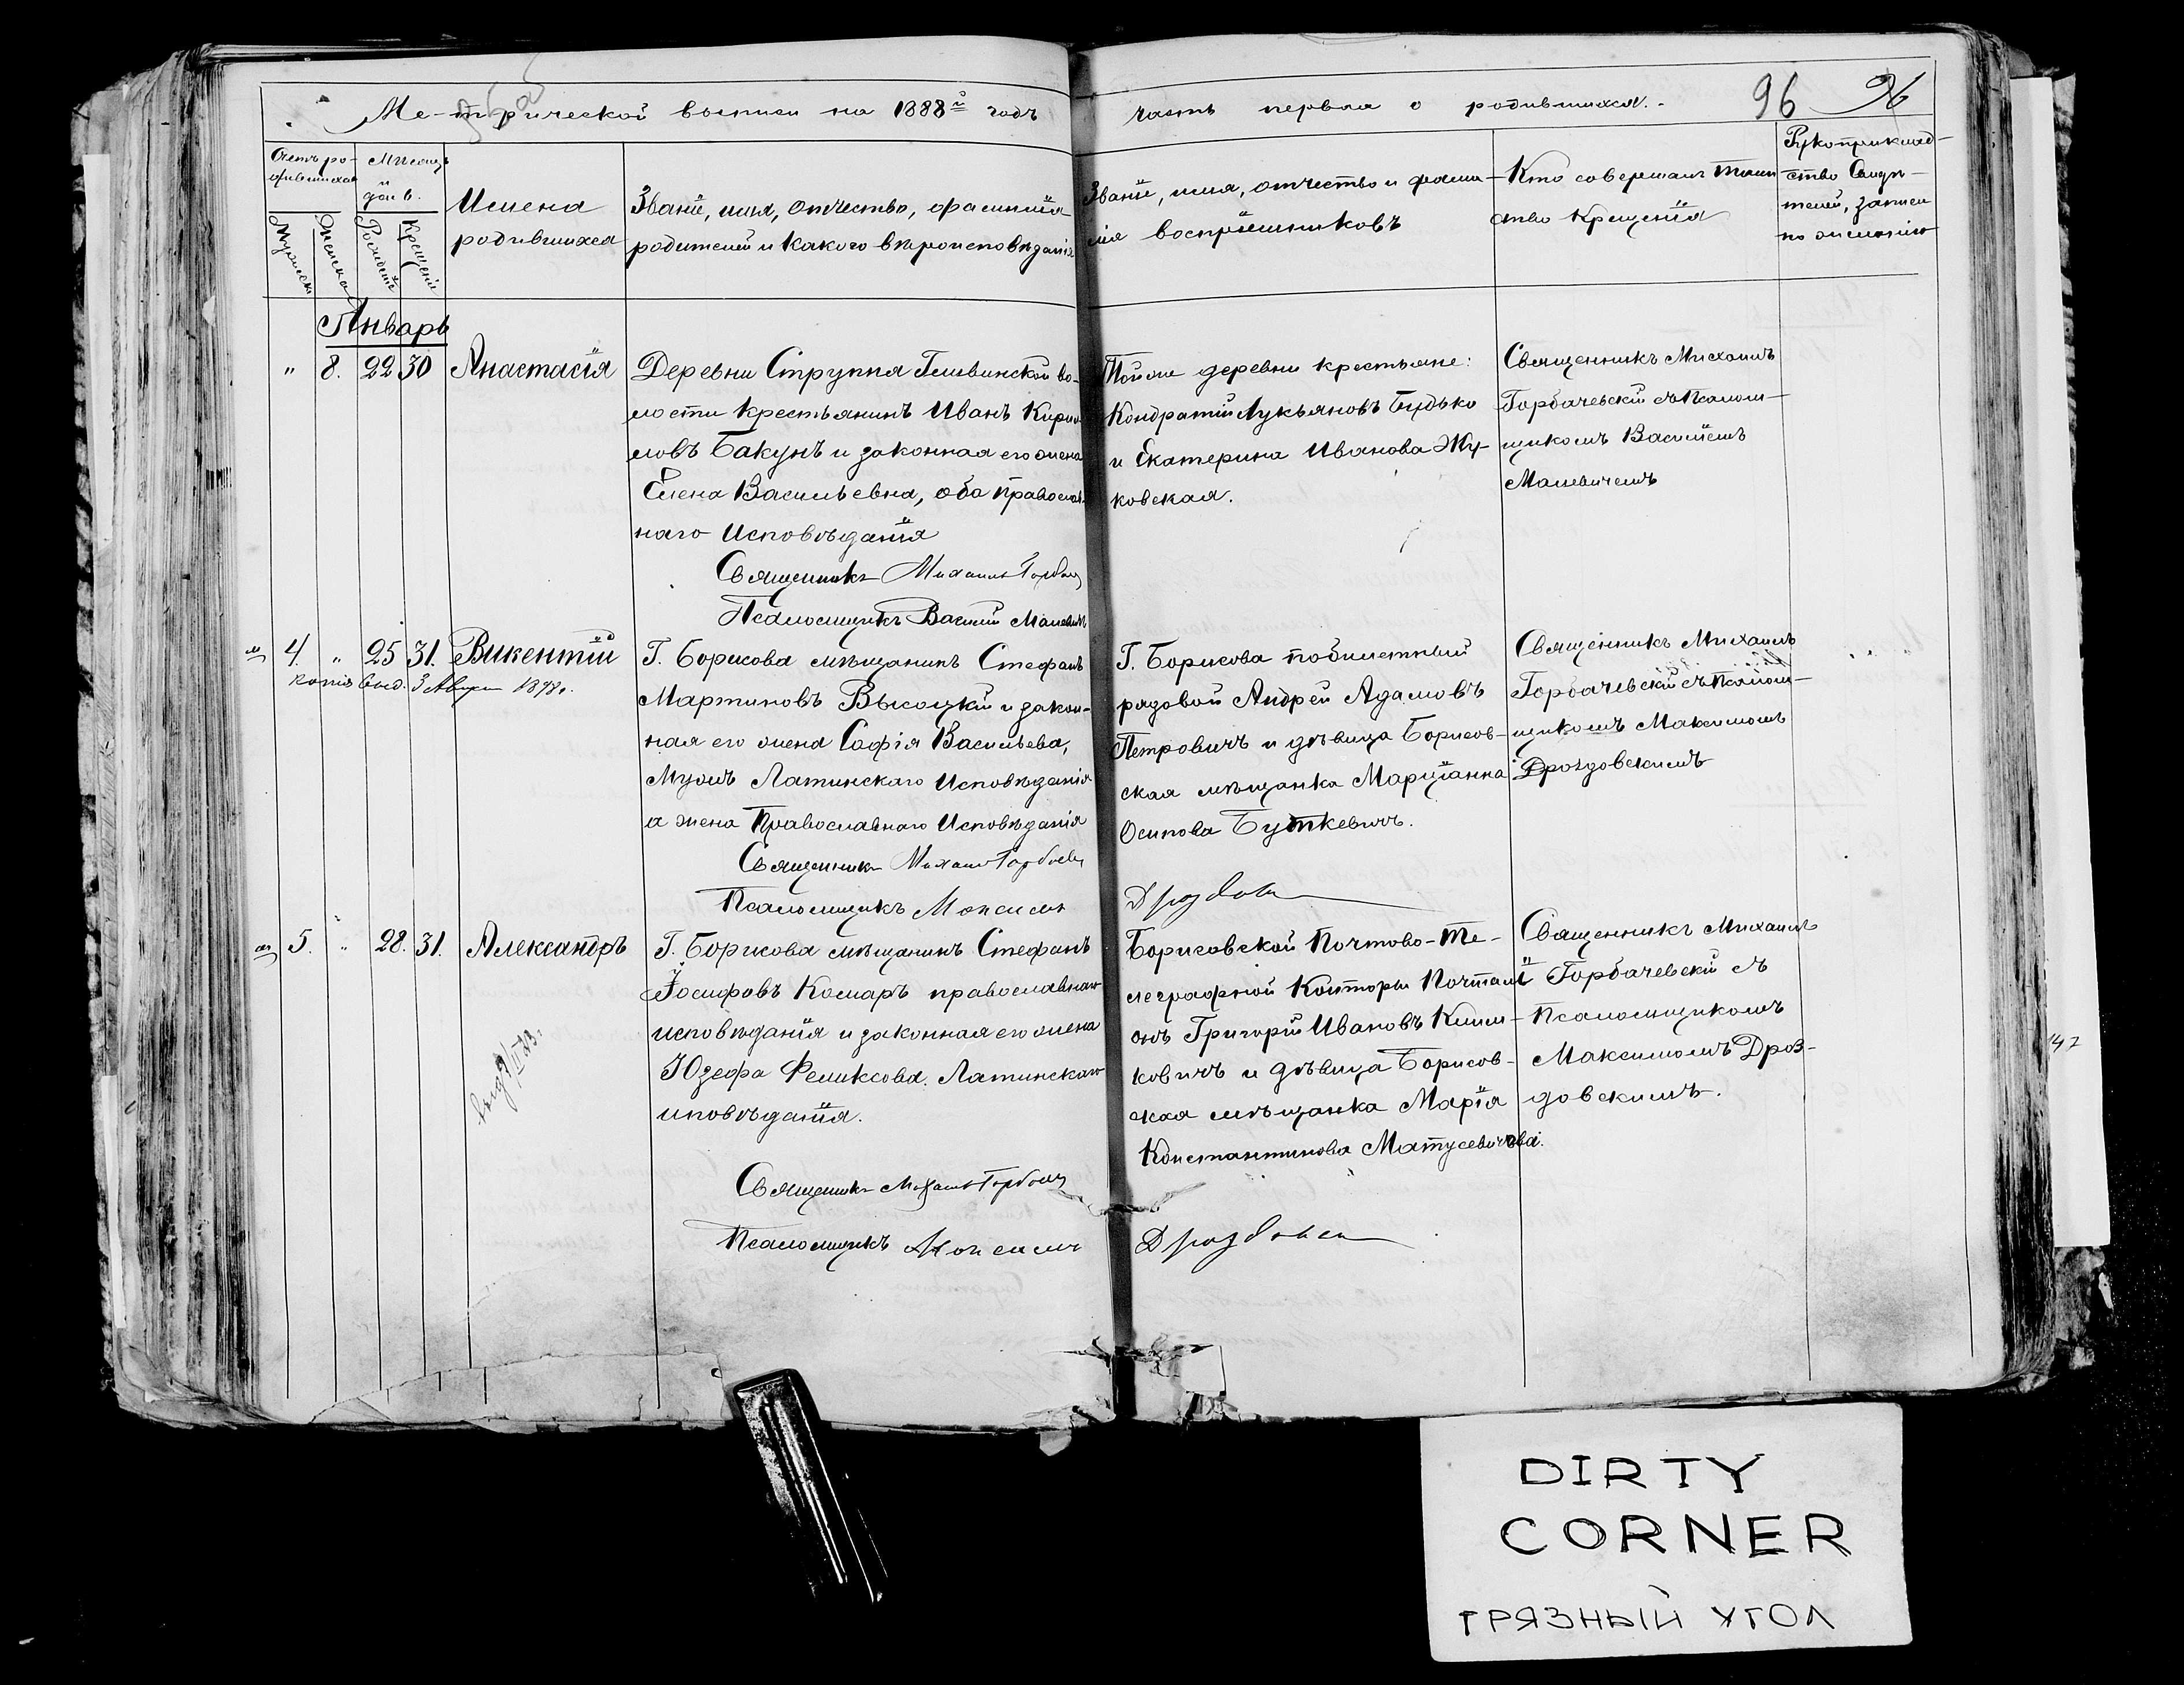 Метрической выписи на 1888й годъ
часть первая о родившихся.
96 96
Счетъ ро-
дившихся
Мужеска
Женска
Мѣсяцъ
дни.
Рожденія
Крещенія
Имена
родившихся
Званіе, имя, отчество, фамилія
родителей и какого вѣроисповѣданія
Званіе, имя, отчество и фами-
лія воспріемниковъ
Кто совершалъ таин
ство крещенія
Рукоприклад-
ство Свидѣ-
телей, записи
по желанію
Январь
" 8. 22 30 Анастасія
Деревни Струппя Гливинской во-
лости крестьянинъ Иванъ Кирил
ловъ Бакунъ и законная его жена
Елена Васильевна, оба Православ
наго Исповѣданія
Священникъ Михаилъ Горбач
Псаломщикъ Василій Малевичъ
Тойже деревни крестьяне:
Кондратій Лукьяновъ Будько
и Екатерина Иванова Жу-
ковская.
Священникъ Михаилъ
Горбачевскій съ Псалом-
щикомъ Василіемъ
Малевичемъ
4. " 25 31. Викентій
копія выд. 3 1898г.
Г. Борисова мѣщанинъ Стефанъ
Мартиновъ Высоцкій и закон-
ная его жена Софія Васильева,
Мужъ Латинскаго Исповѣданія
а жена Православнаго Исповѣданія
Священникъ Михаилъ Горбачев
Псаломщикъ Максимъ
Г. Борисова побилетный
рядовой Андрей Адамовъ
Петровичъ и дѣвица Борисов-
ская мѣщанка Маріанна
Осипова Буткевичъ.
Дроздовск
Священникъ Михаилъ
Горбачевскій съ Псалом-
щикомъ Максимомъ
Дроздовскимъ
5. " 28. 31. Александръ
Г. Борисова мѣщанинъ Стефанъ
Іосифовъ Комаръ православнаго
исповѣданія и законная его жена
Юзефа Феликсова. Латинскаго
иповѣданія.
Священникъ Михаилъ Горбач
Псаломщикъ Максимъ
Борисовской Почтово-Те-
леграфной Конторы Почталі
онъ Григорій Ивановъ Клим-
ковичъ и дѣвица Борисов-
ская мѣщанка Марія
Константинова Матусевичова.
Дроздовск
Священникъ Михаилъ
Горбачевскій съ
Псаломщикомъ
Максимомъ Дроз-
довскимъ.
47
DIRTY
CORNER
ГРЯЗНЫЙ УГОЛ